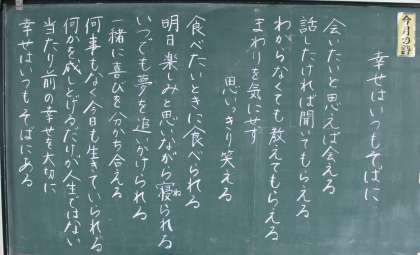 今月の詩
幸せはいつもそばに
会いたいと思えば会える
話したければ聞いてもらえる
わからなくても教えてもらえる
まわりを気にせず
思いっきり笑える
食べたいときに食べられる
明日楽しみと思いながら寝られる
ね
いつでも夢を追いかけられる
一緒に喜びを分かち合える
何事もなく今日も生きていられる
何かを成しとげるだけが人生ではない
当たり前の幸せを大切に
幸せはいつもそばにある